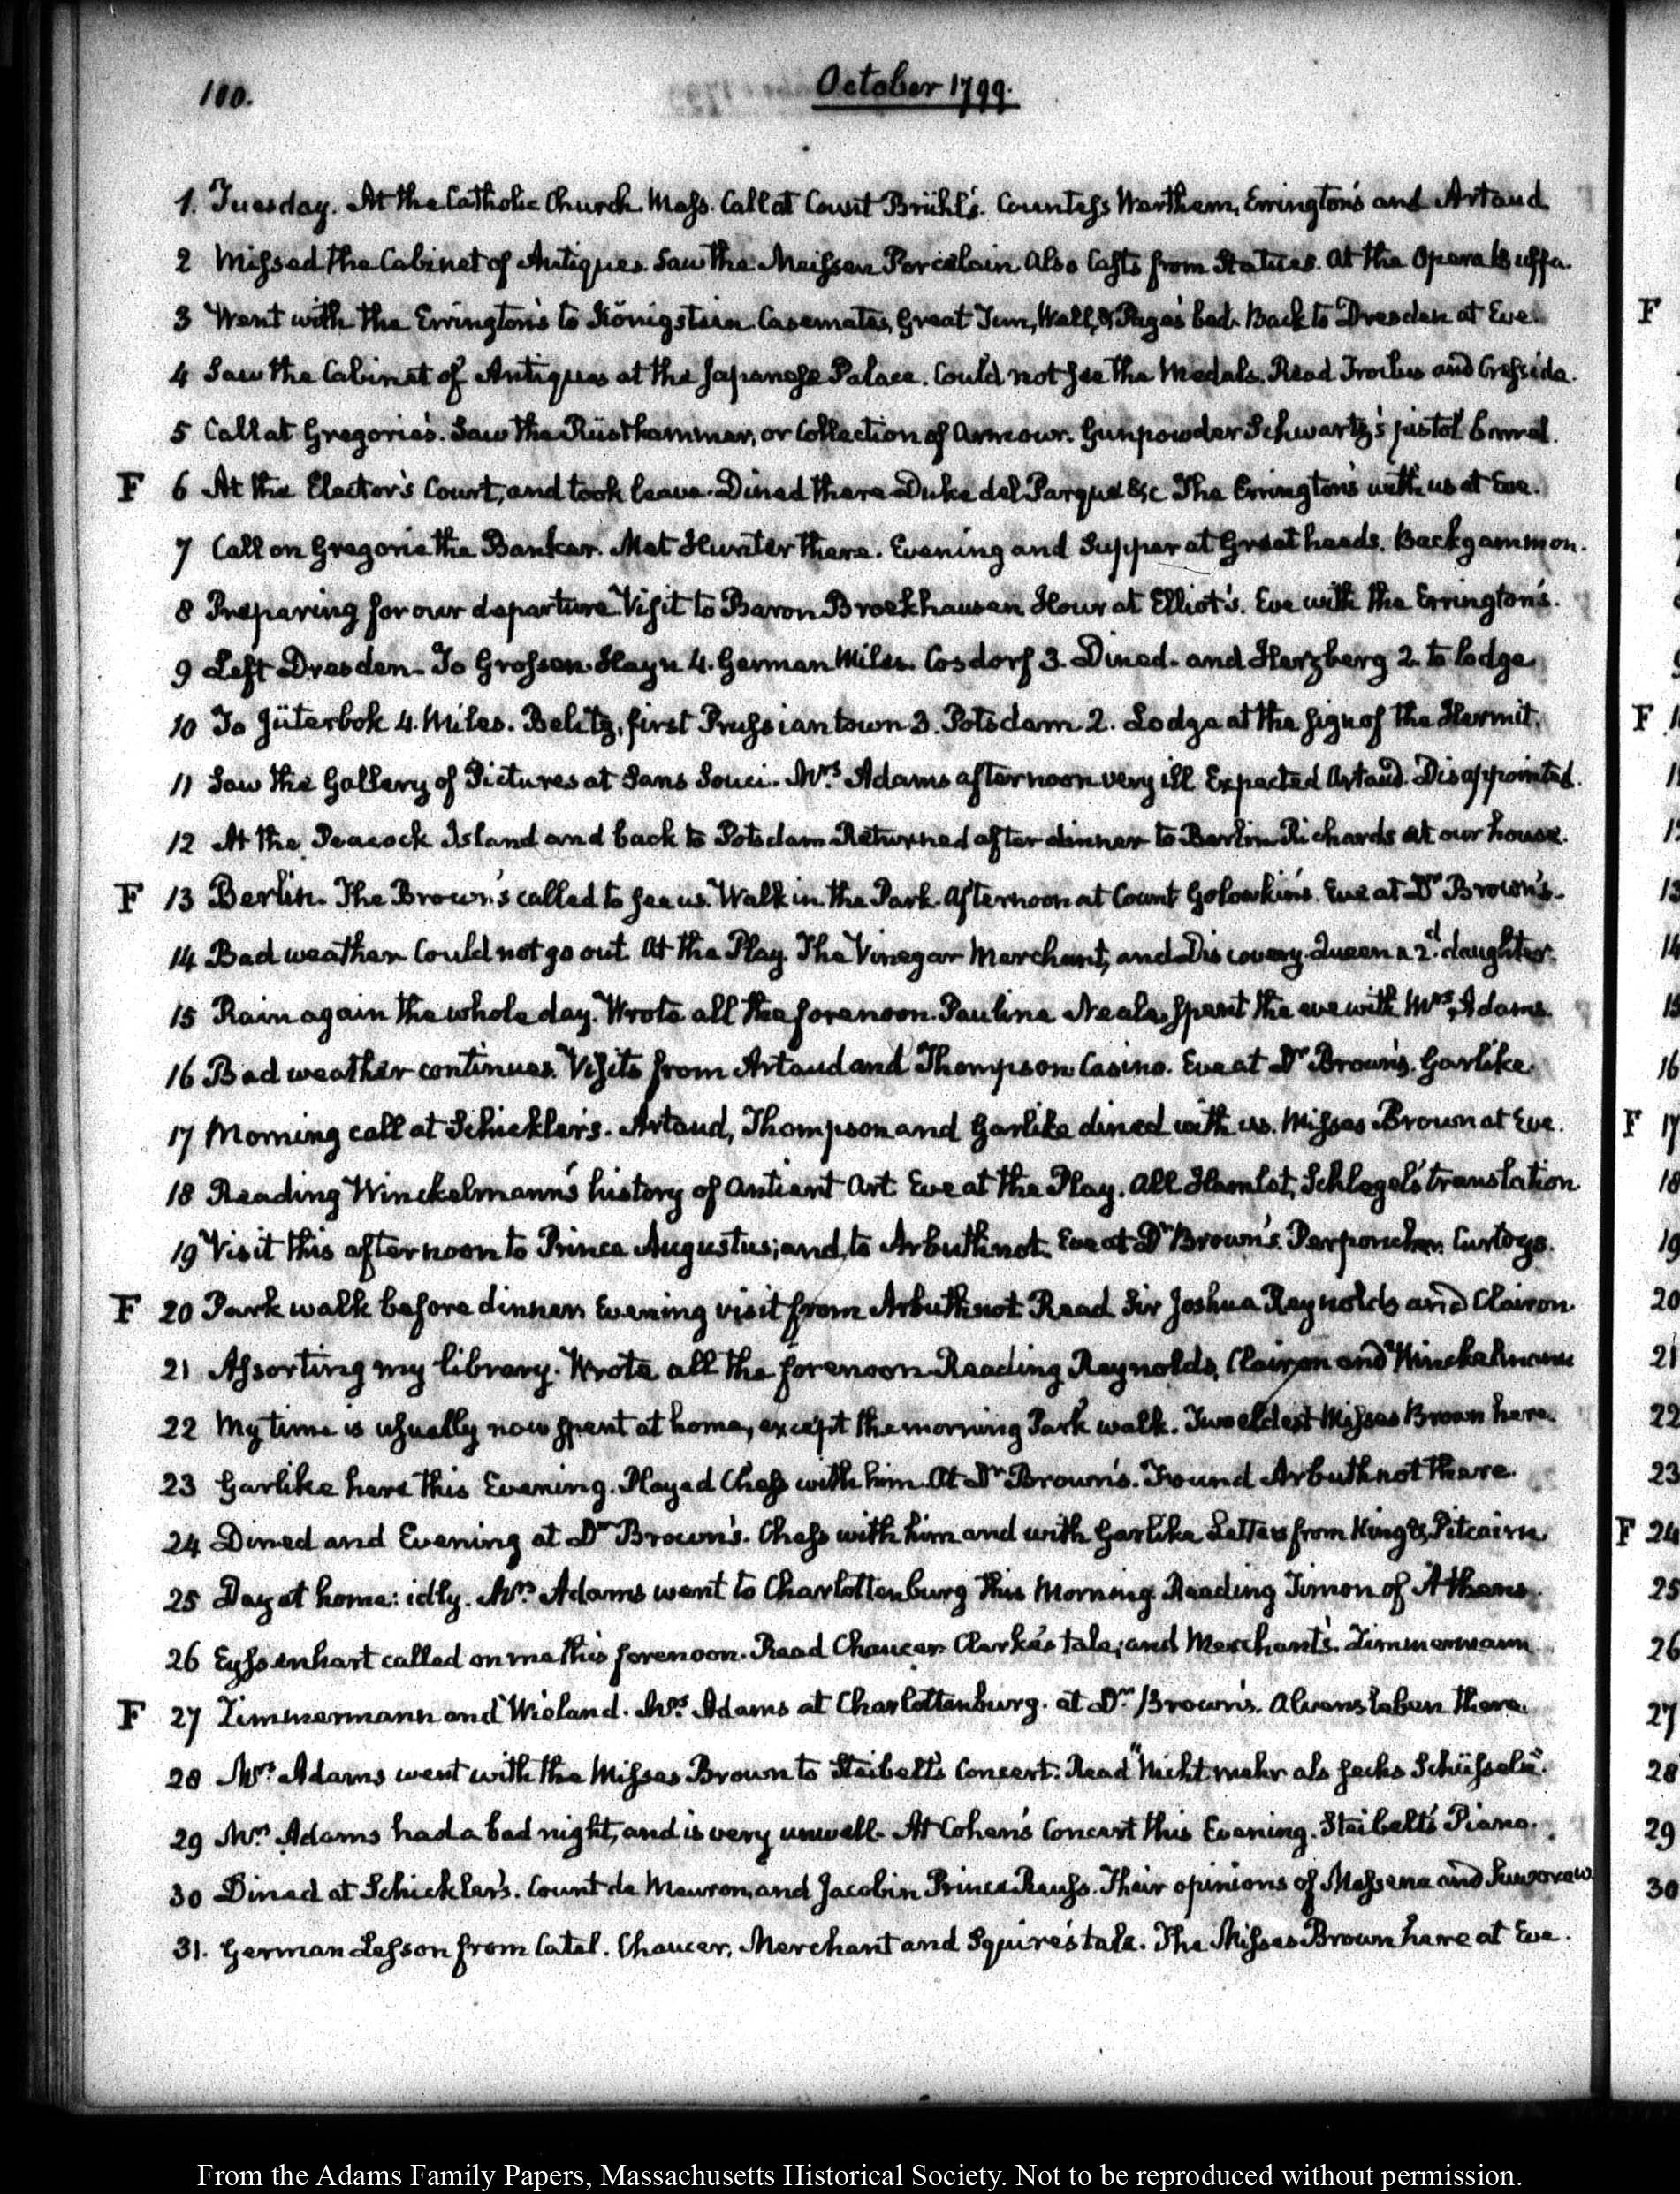 100.
October 1799.
1. Tuesday. At the Catholic Church. Mass. Call at Count Brühl's. Countess Werthern, Errington's and Artaud
2 Missed the Cabinet of Antiques. Saw the Meissen Porcelain Also Casts from Statues. At the Opera Buffa.
3 Went with the Errington's to Königstein. Casemates, Great Tun, Well, & Page's bed. Back to Dresden at Eve.
4 Saw the Cabinet of Antiques at the Japanese Palace. Could not see the Medals. Read Troilus and Cressida.
5 Call at Gregorie's. Saw the Rüstkammer, or Collection of Armour. Gunpowder Schwartz's pistol barrel.
F 6 At the Elector's Court, and took leave. Dined there Duke del Parque &c The Errington's with us at Eve.
7 Call on Gregorie the Banker. Met Hunter there. Evening and Supper at Greatheeds. Backgammon.
8 Preparing for our departure Visit to Baron Brockhausen Hour at Elliot's. Eve with the Errington's.
9 Left Dresden- To Grossen-Hayn 4. German Miles. Cosdorf 3. Dined- and Herzberg 2. to lodge
10 To Jüterbok 4. Miles. Belitz, first Prussian town 3. Potsdam 2. Lodge at the sign of the Hermit.
11 Saw the Gallery of Pictures at Sans Souci. Mrs. Adams afternoon very ill Expected Artaud. Disappointed.
12 At the Peacock Island and back to Potsdam Returned after dinner to Berlin. Richards at our house.
F 13 Berlin. The Brown's called to see us. Walk in the Park. Afternoon at Count Golowkin's. Eve at Dr Brown's.
14 Bad weather Could not go out. At the Play. The Vinegar Merchant, and Discovery. Queen a 2d. daughter.
15 Rain again the whole day. Wrote all the forenoon. Pauline Neale spent the eve with Mrs. Adams.
16 Bad weather continues. Visits from Artaud and Thompson Casino. Eve at Dr Brown's. Garlike.
17 Morning call at Schickler's. Artaud, Thompson and Garlike dined with us. Misses Brown at Eve.
18 Reading Winckelmann's history of Antient Art. Eve at the Play. All Hamlet, Schlegel's translation
19 Visit this afternoon to Prince Augustus; and to Arbuthnot. Eve at Dr Brown's. Perponcher. Curtoys.
F 20 Park walk before dinner. Evening visit from Arbuthnot Read Sir Joshua Reynolds and Clairon.
21 Assorting my library. Wrote all the forenoon. Reading Reynolds, Clairon and Winckelmann
22 My time is usually now spent at home, except the morning Park walk. Two eldest Misses Brown here.
23 Garlike here this Evening. Played Chess with him. At Dr Brown's. Found Arbuthnot there.
24 Dined and Evening at Dr Brown's. Chess with him and with Garlike Letters from King & Pitcairn
25 Day at home: idly. Mrs. Adams went to Charlottenburg this Morning. Reading Timon of Athens.
26 Eyssenhart called on me this forenoon. Read Chaucer Clerk's tale; and Merchant's. Zimmermann
F 27 Zimmermann and Wieland. Mrs. Adams at Charlottenburg. at Dr. Brown's. Alvensleben there.
28 Mrs. Adams went with the Misses Brown to Steibelt's Concert. Read "Nicht mehr als sechs Schüsseln".
29 Mrs. Adams had a bad night, and is very unwell. At Cohen's Concert this Evening. Steibelt's Piano.
30 Dined at Schickler's. Count de Meuron, and Jacobin Prince Reuss. Their opinions of Massena and Suworow
31. German Lesson from Catel. Chaucer, Merchant and Squire's tale. The Misses Brown here at Eve.
F
F
F 17
18
19
20
21
22
23
F 24
25
26
27
28
29
30
From the Adams Family Papers, Massachusetts Historical Society. Not to be reproduced without permission.